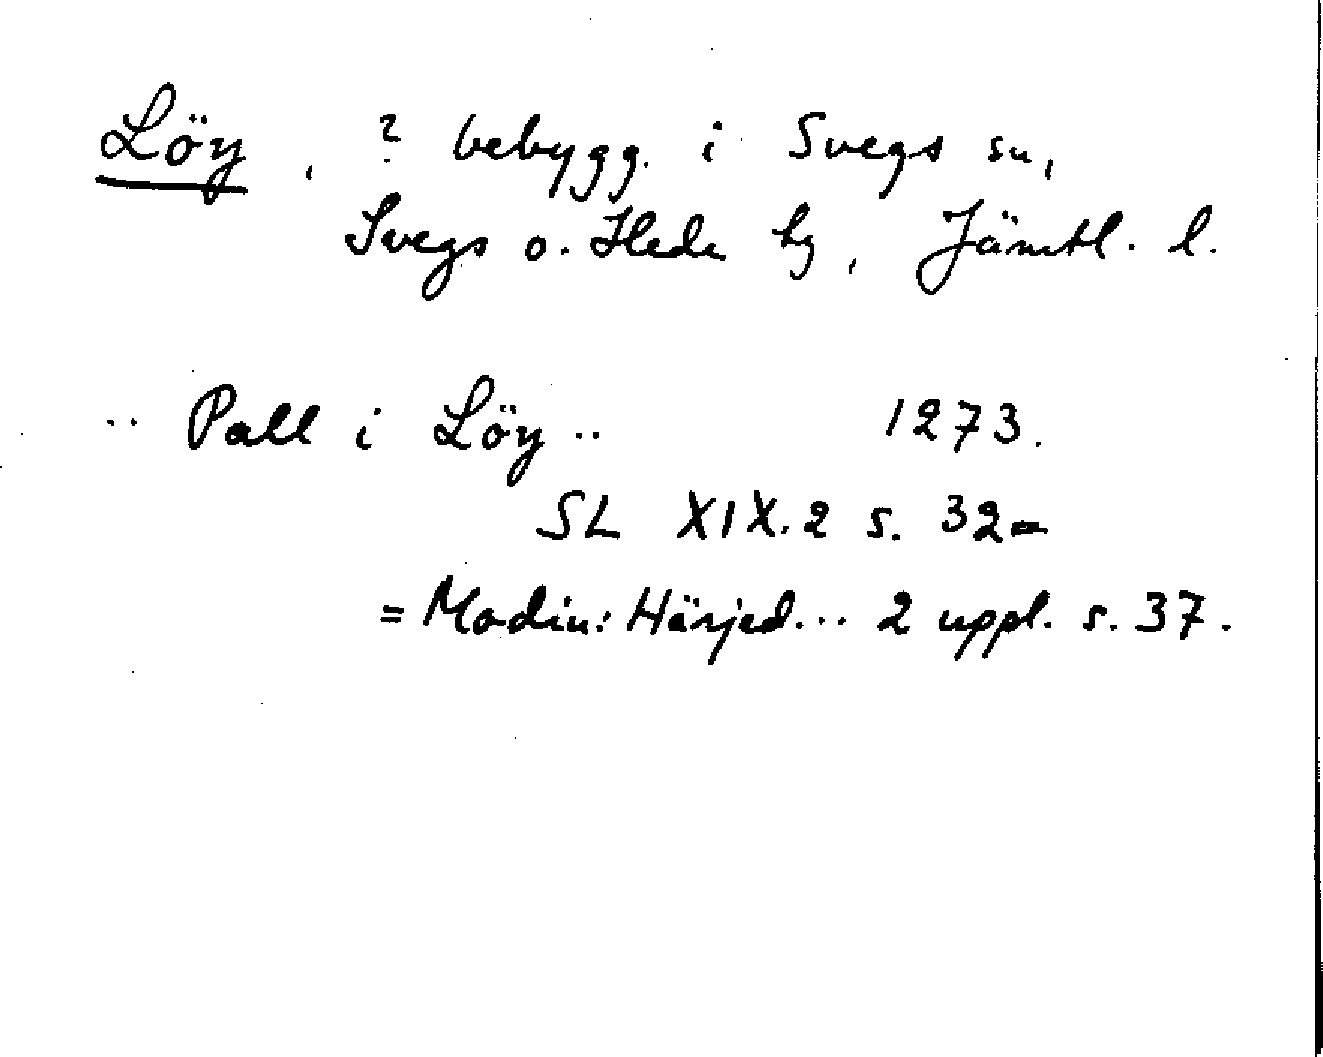 Löy, ? bebygg. i Svegs sn,
Svegs o. Hede tg, Jämtl. l.
.. Pall i Löy .. 1273.
SL XIX.2 s. 32
= Modin: Härjed... 2 uppl. s. 37.